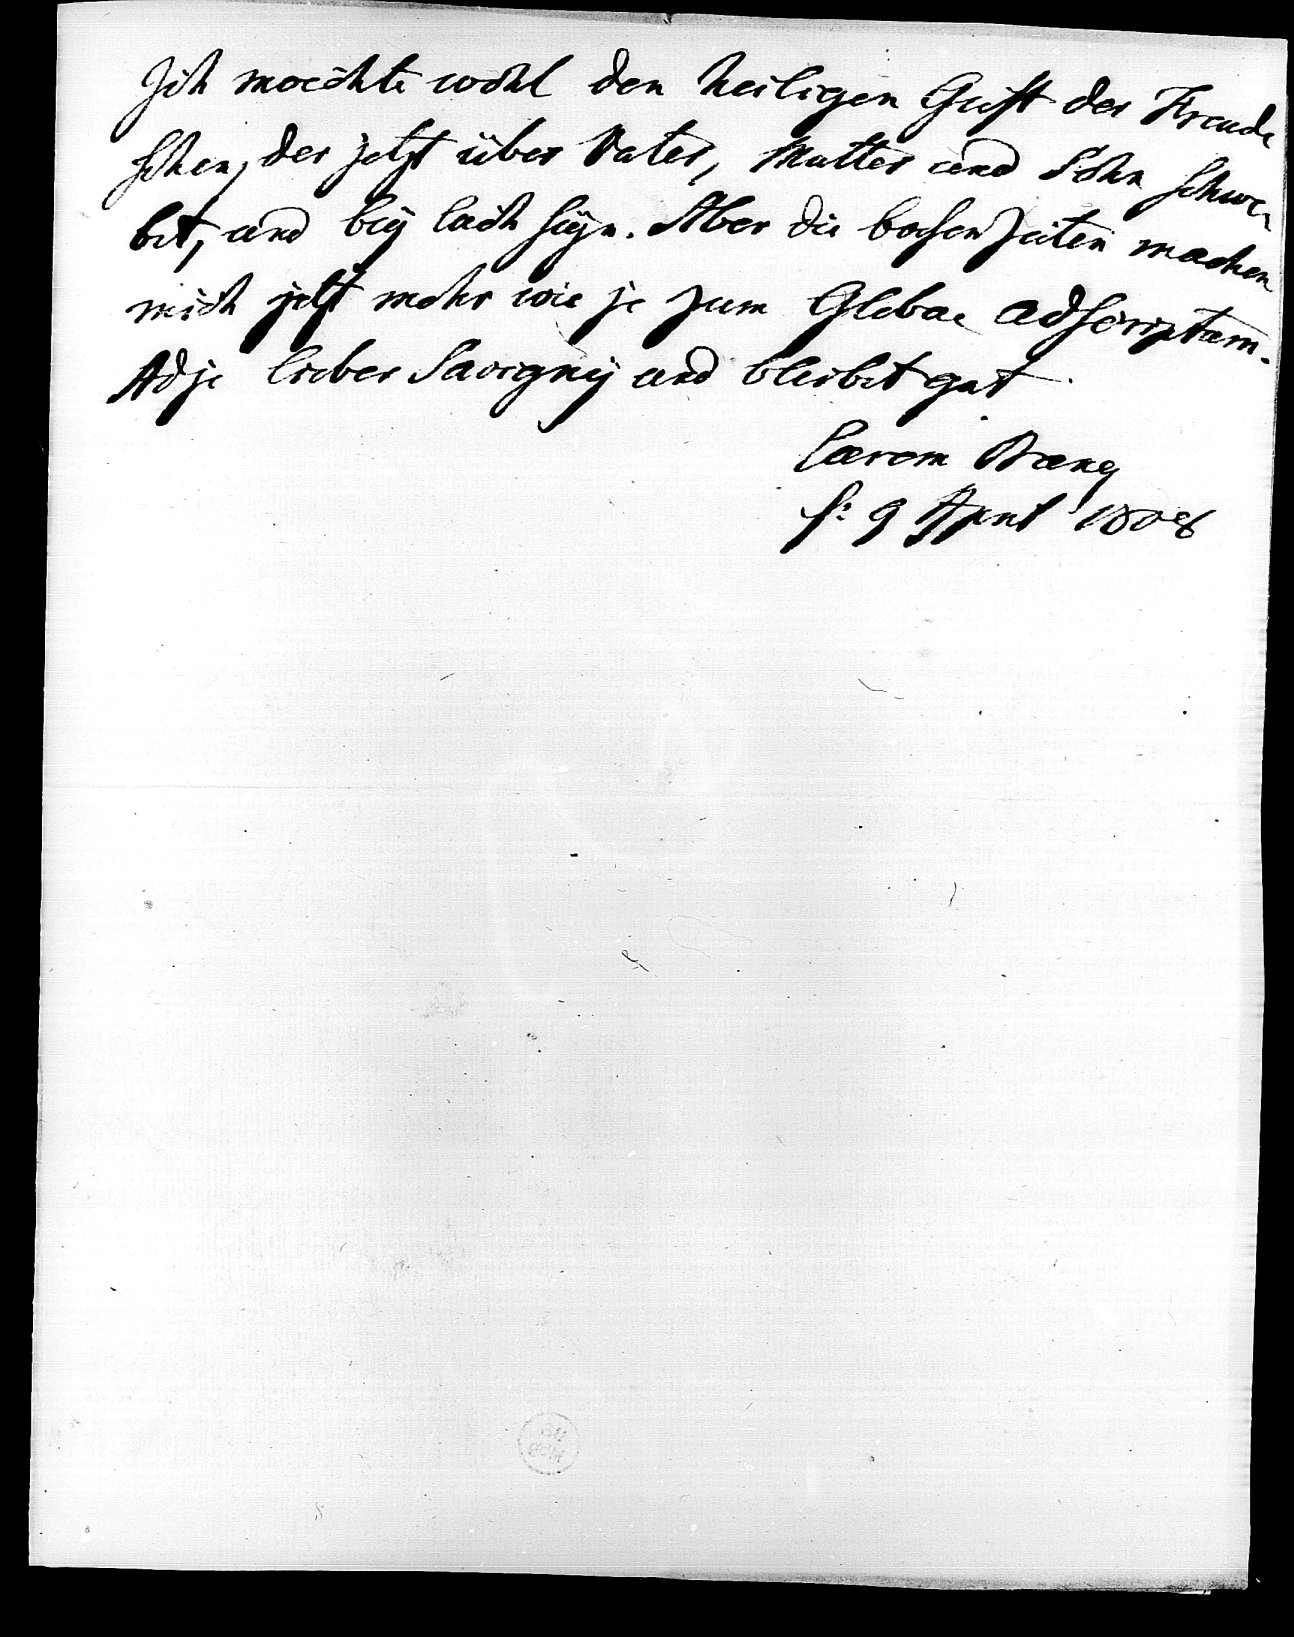 Ich moechte wohl den heiligen Geist der Freude
sehen, der jetzt über Vater, Mutter und Sohn schwe-
bet, und bey euch seyn. Aber die boesen Zeiten machen
mich jetzt mehr wie je zum Glebae adscriptum.
Adje lieber Savigny und bleibet gut
Eurem Bang
9 April 1808